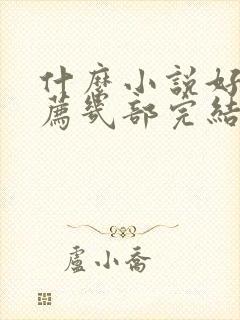 什麼小說好
薦幾部完結
盧小喬